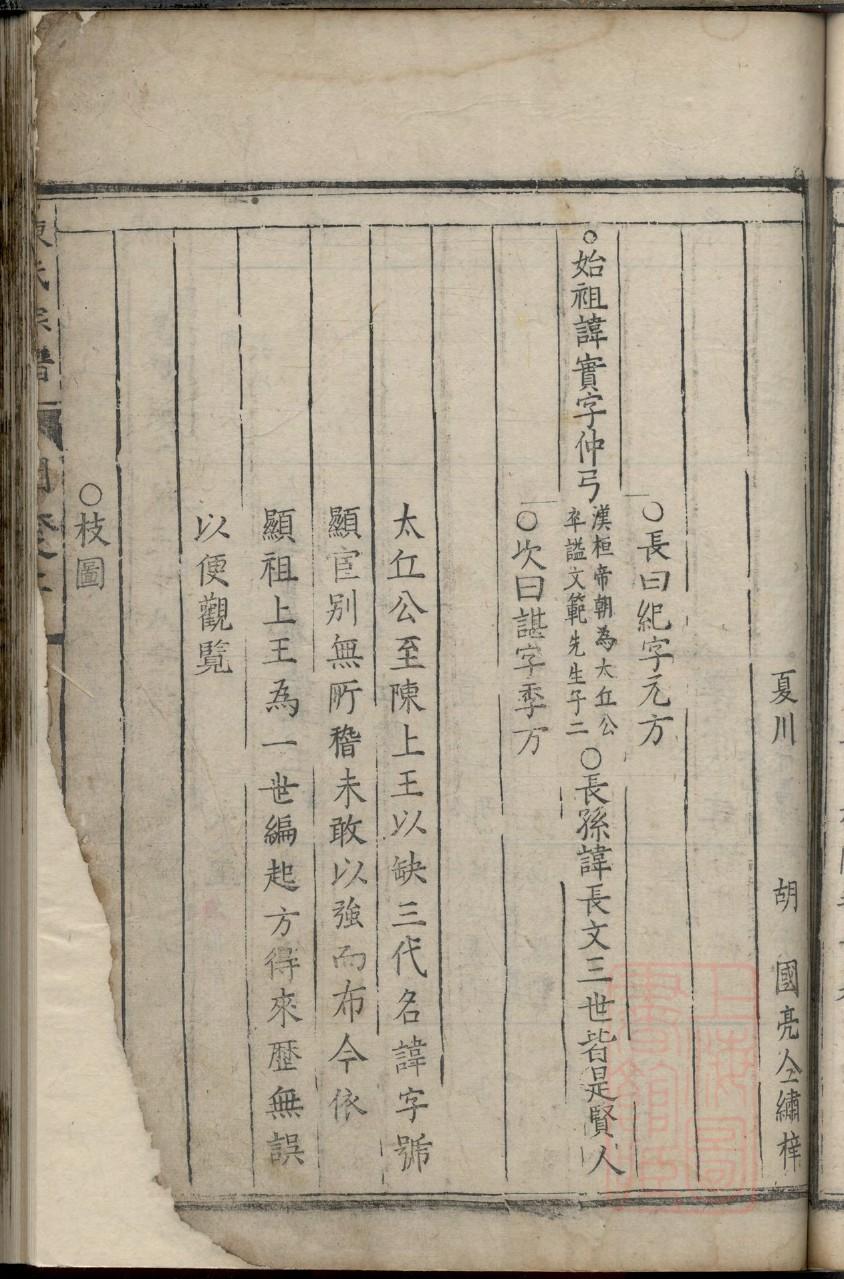 夏川　胡　國亮仝繡梓
○長曰紀字元方
○始祖諱實字仲弓
漢桓帝朝為太丘公
卒謚文範先生子二
○長孫諱長文三世皆是賢人
○次曰諶字季方
太丘公至陳上王以缺三代名諱字號
顯宦别無所稽未敢以強而布今依
顯祖上王為一世編起方得來歷無誤
以便觀覽
○枝圖
氏宗譜
上海圖書館藏